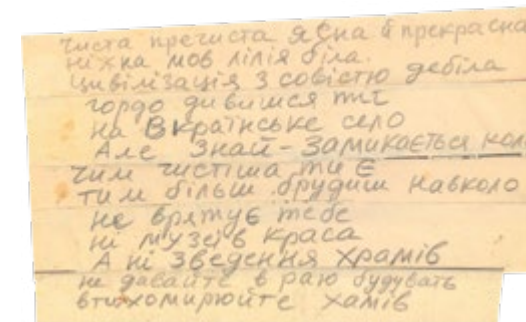 чиста пречиста ясна й прекрасна
ніжка мов лілія біла.
цивілізація з совістю дебіла
гордо дивишся ти
на Вкраїнське село
Але знай - замикається
чим чистіша ти є
тим більш брудиш навколо
не врятує тебе
ні музеїв краса
А ні зведення храмів
не давайте в раю будувать
втихомирюйте хамів